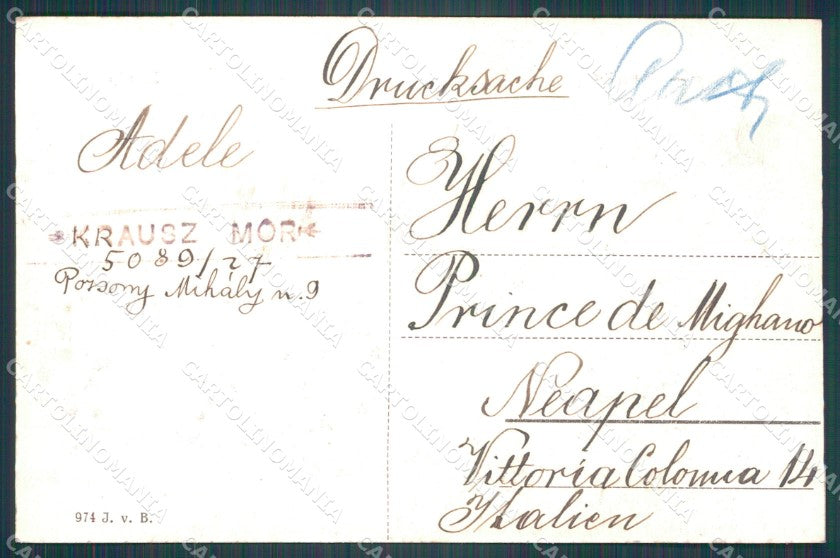 Drucksache
Adele
KRAUSZ MÓR
5089/27
Pozsony Mihály u. 9
Herrn
Prince de Mighano
Neapel
Vittoria Colonna 14
Italien
974 J. v. B.
CARTOLINOMANIA